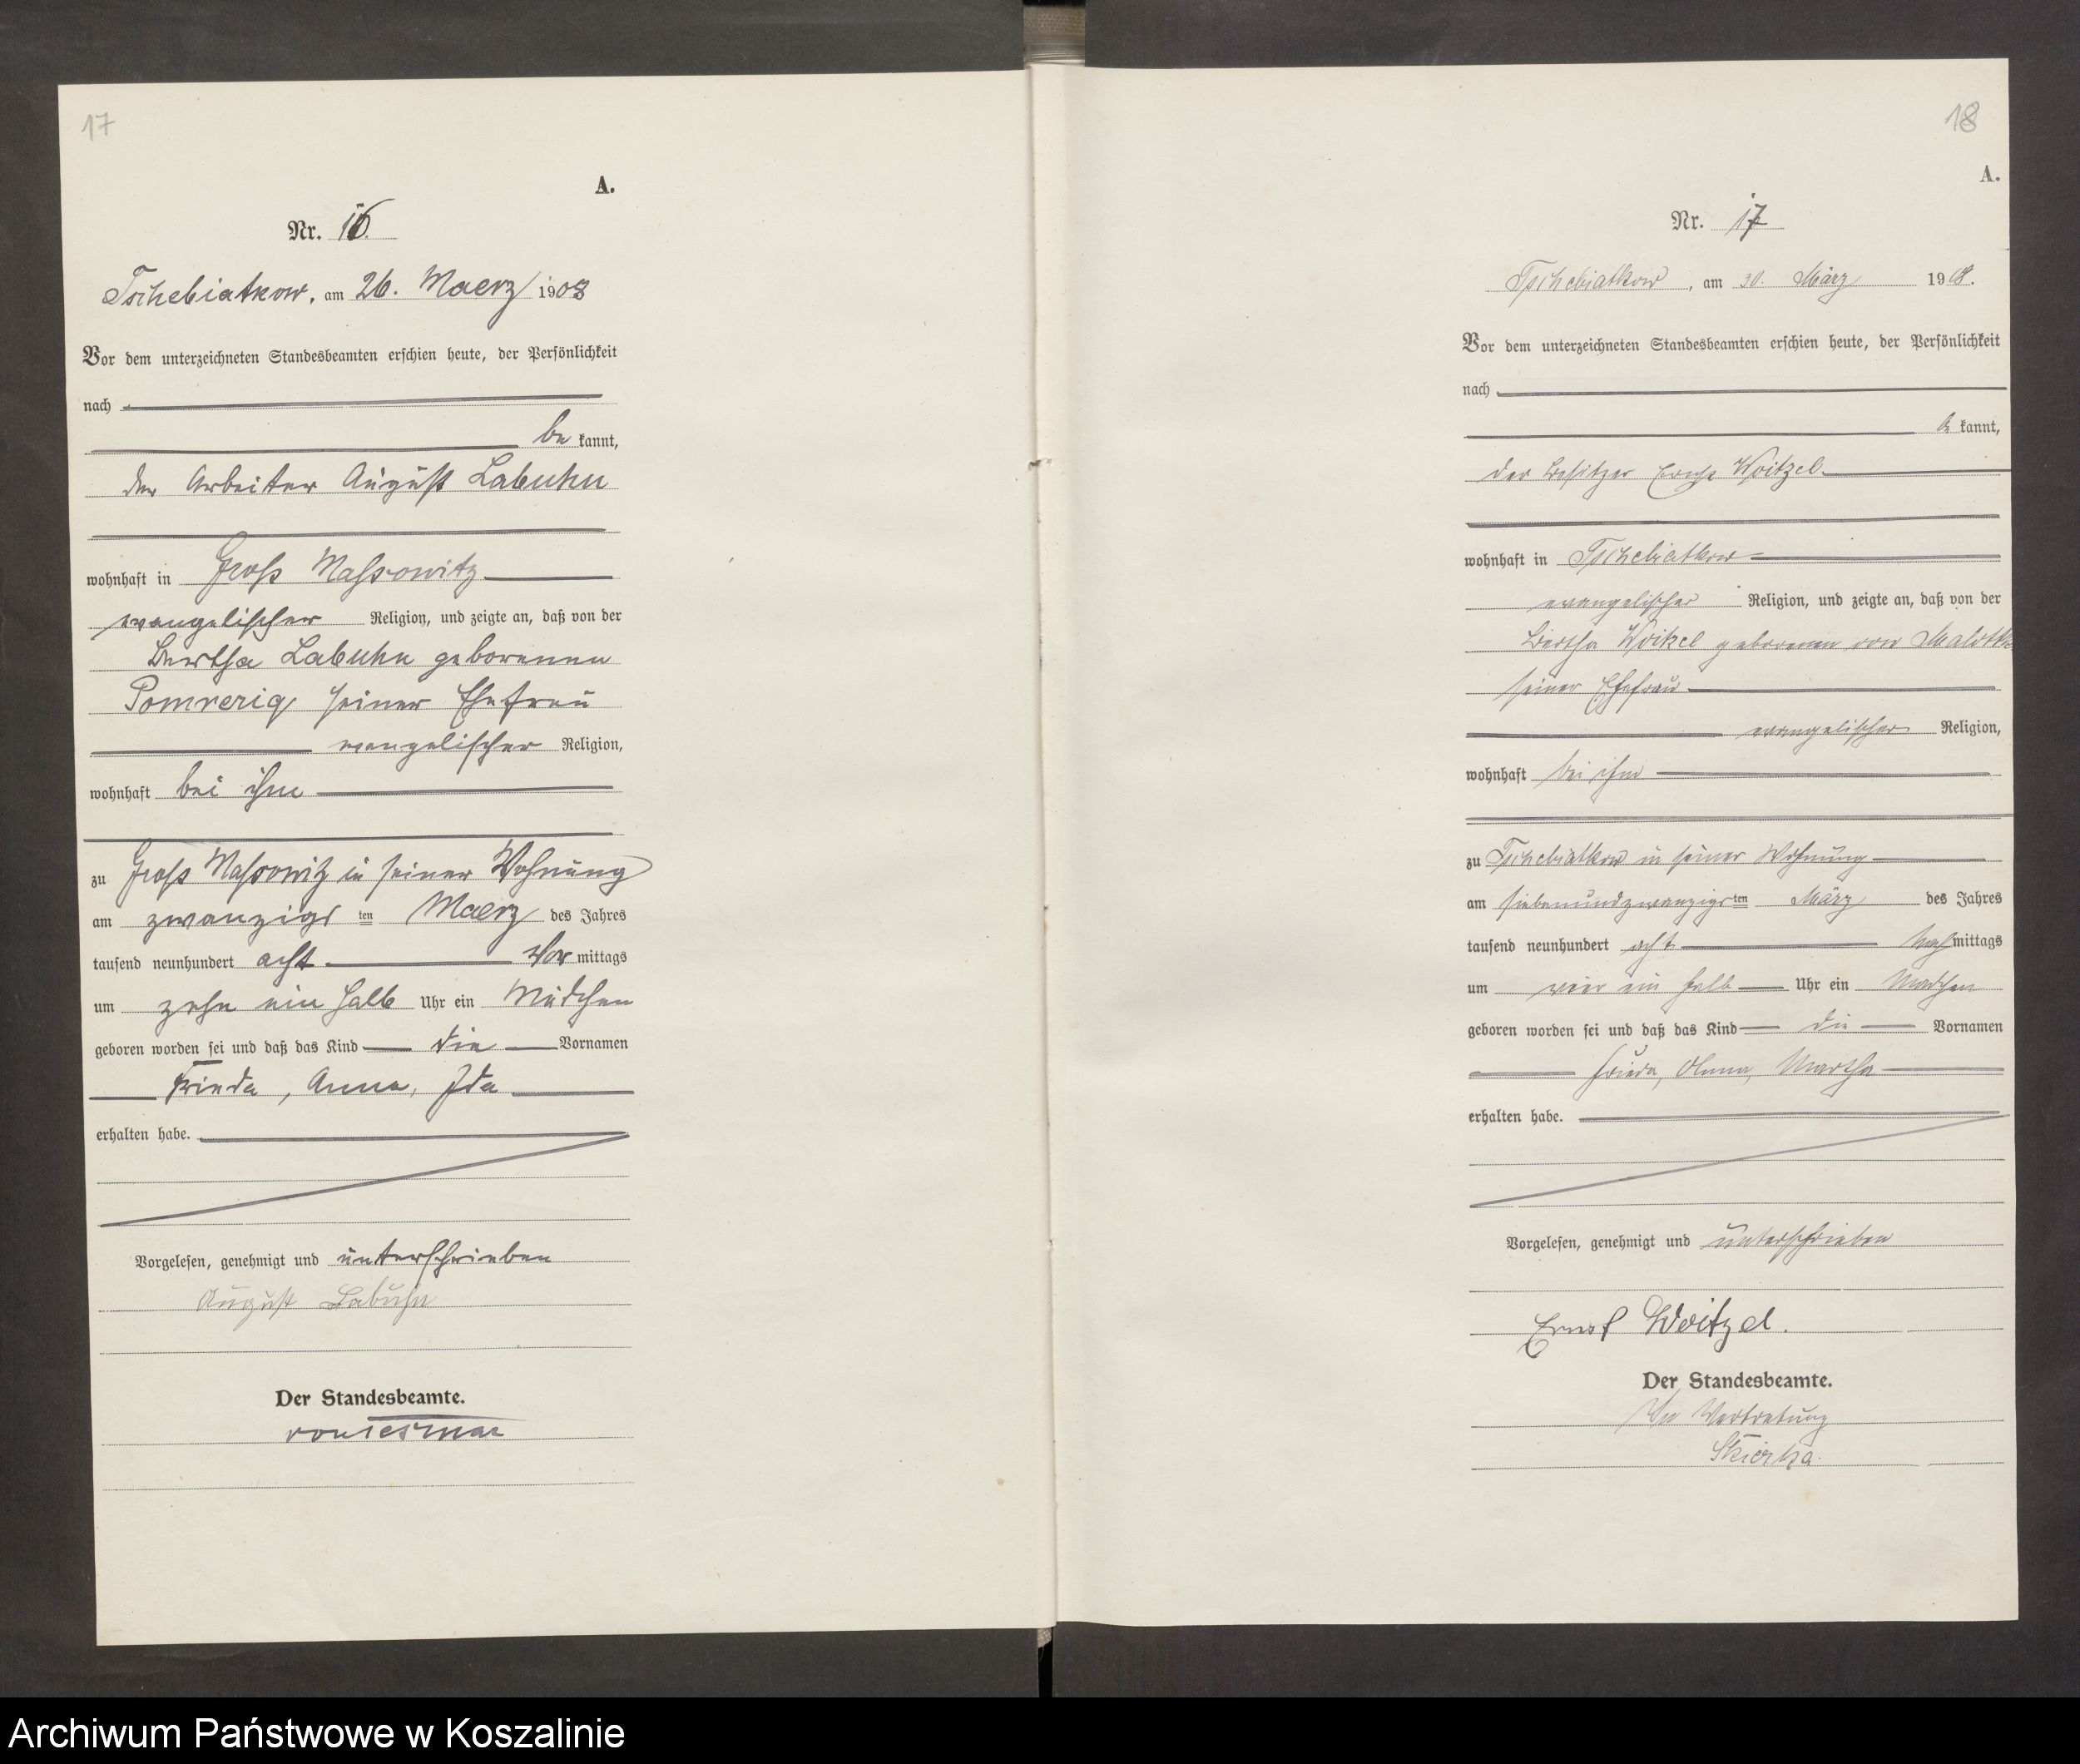 17
A.
Nr. 16.
Tschebiatkow, am 26. Maerz 1908
Vor dem unterzeichneten Standesbeamten erschien heute, der Persönlichkeit
nach
be kannt,
der Arbeiter August Labuhn
wohnhaft in Groß Massowitz
evangelischer Religion, und zeigte an, daß von der
Bertha Labuhn geborenen
seiner Ehefrau
evangelischer Religion,
wohnhaft bei ihm
zu Groß Massowitz in seiner Wohnung
am zwanzigs ten Maerz des Jahres
tausend neunhundert acht Vor mittags
um zehn ein halb Uhr ein Mädchen
geboren worden sei und daß das Kind die Vornamen
Frieda, Anna, Ida
erhalten habe.
Vorgelesen, genehmigt und unterschrieben
August Labuhn
Der Standesbeamte.
18
A.
Nr. 17
Tschebiatkow, am 30. März 1908.
Vor dem unterzeichneten Standesbeamten erschien heute, der Persönlichkeit
nach
be kannt,
der Besitzer Ernst Woitzel
wohnhaft in Tschebiatkow
evangelischer Religion, und zeigte an, daß von der
Bertha Woitzel geborenen von Malottki
seiner Ehefrau
evangelischer Religion,
wohnhaft bei ihm
zu Tschebiatkow in seiner Wohnung
am siebenundzwanzigs ten März des Jahres
tausend neunhundert acht Nach mittags
um vier ein halb Uhr ein Mädchen
geboren worden sei und daß das Kind die Vornamen
Frieda, Martha
erhalten habe.
Vorgelesen, genehmigt und unterschrieben
Ernst Woitzel.
Der Standesbeamte.
In Vertretung
Skierka.
Archiwum Państwowe w Koszalinie